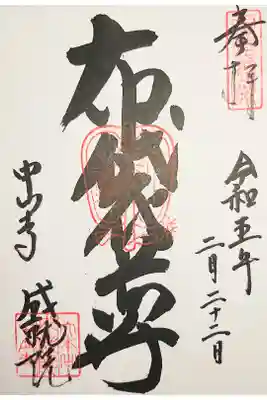 奉拝
令和五年
二月二十二日
布袋尊
中山寺
成就院